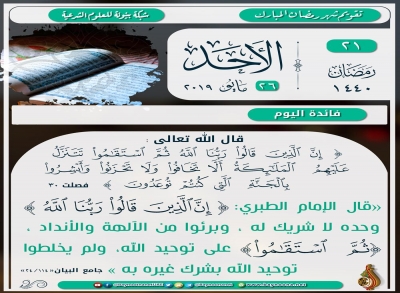 تقويم شهر رمضان المبارك
شبكة بينونة للعلوم الشرعية
٢١
رمضان
١٤٤٠
الأحد
٢٦ مايو ٢٠١٩
فائدة اليوم
قال الله تعالى :
﴿ إِنَّ الَّذِينَ قَالُوا رَبُّنَا اللَّهُ ثُمَّ اسْتَقَامُوا تَتَنَزَّلُ
عَلَيْهِمُ الْمَلَائِكَةُ أَلَّا تَخَافُوا وَلَا تَحْزَنُوا وَأَبْشِرُوا
بِالْجَنَّةِ الَّتِي كُنتُمْ تُوعَدُونَ ﴾ فصلت ٣٠
«قال الإمام الطبري: ﴿إِنَّ الَّذِينَ قَالُوا رَبُّنَا اللَّهُ﴾
وحده لا شريك له ، وبرئوا من الآلهة والأنداد ،
﴿ثُمَّ اسْتَقَامُوا﴾ على توحيد الله، ولم يخلطوا
توحيد الله بشرك غيره به » جامع البيان